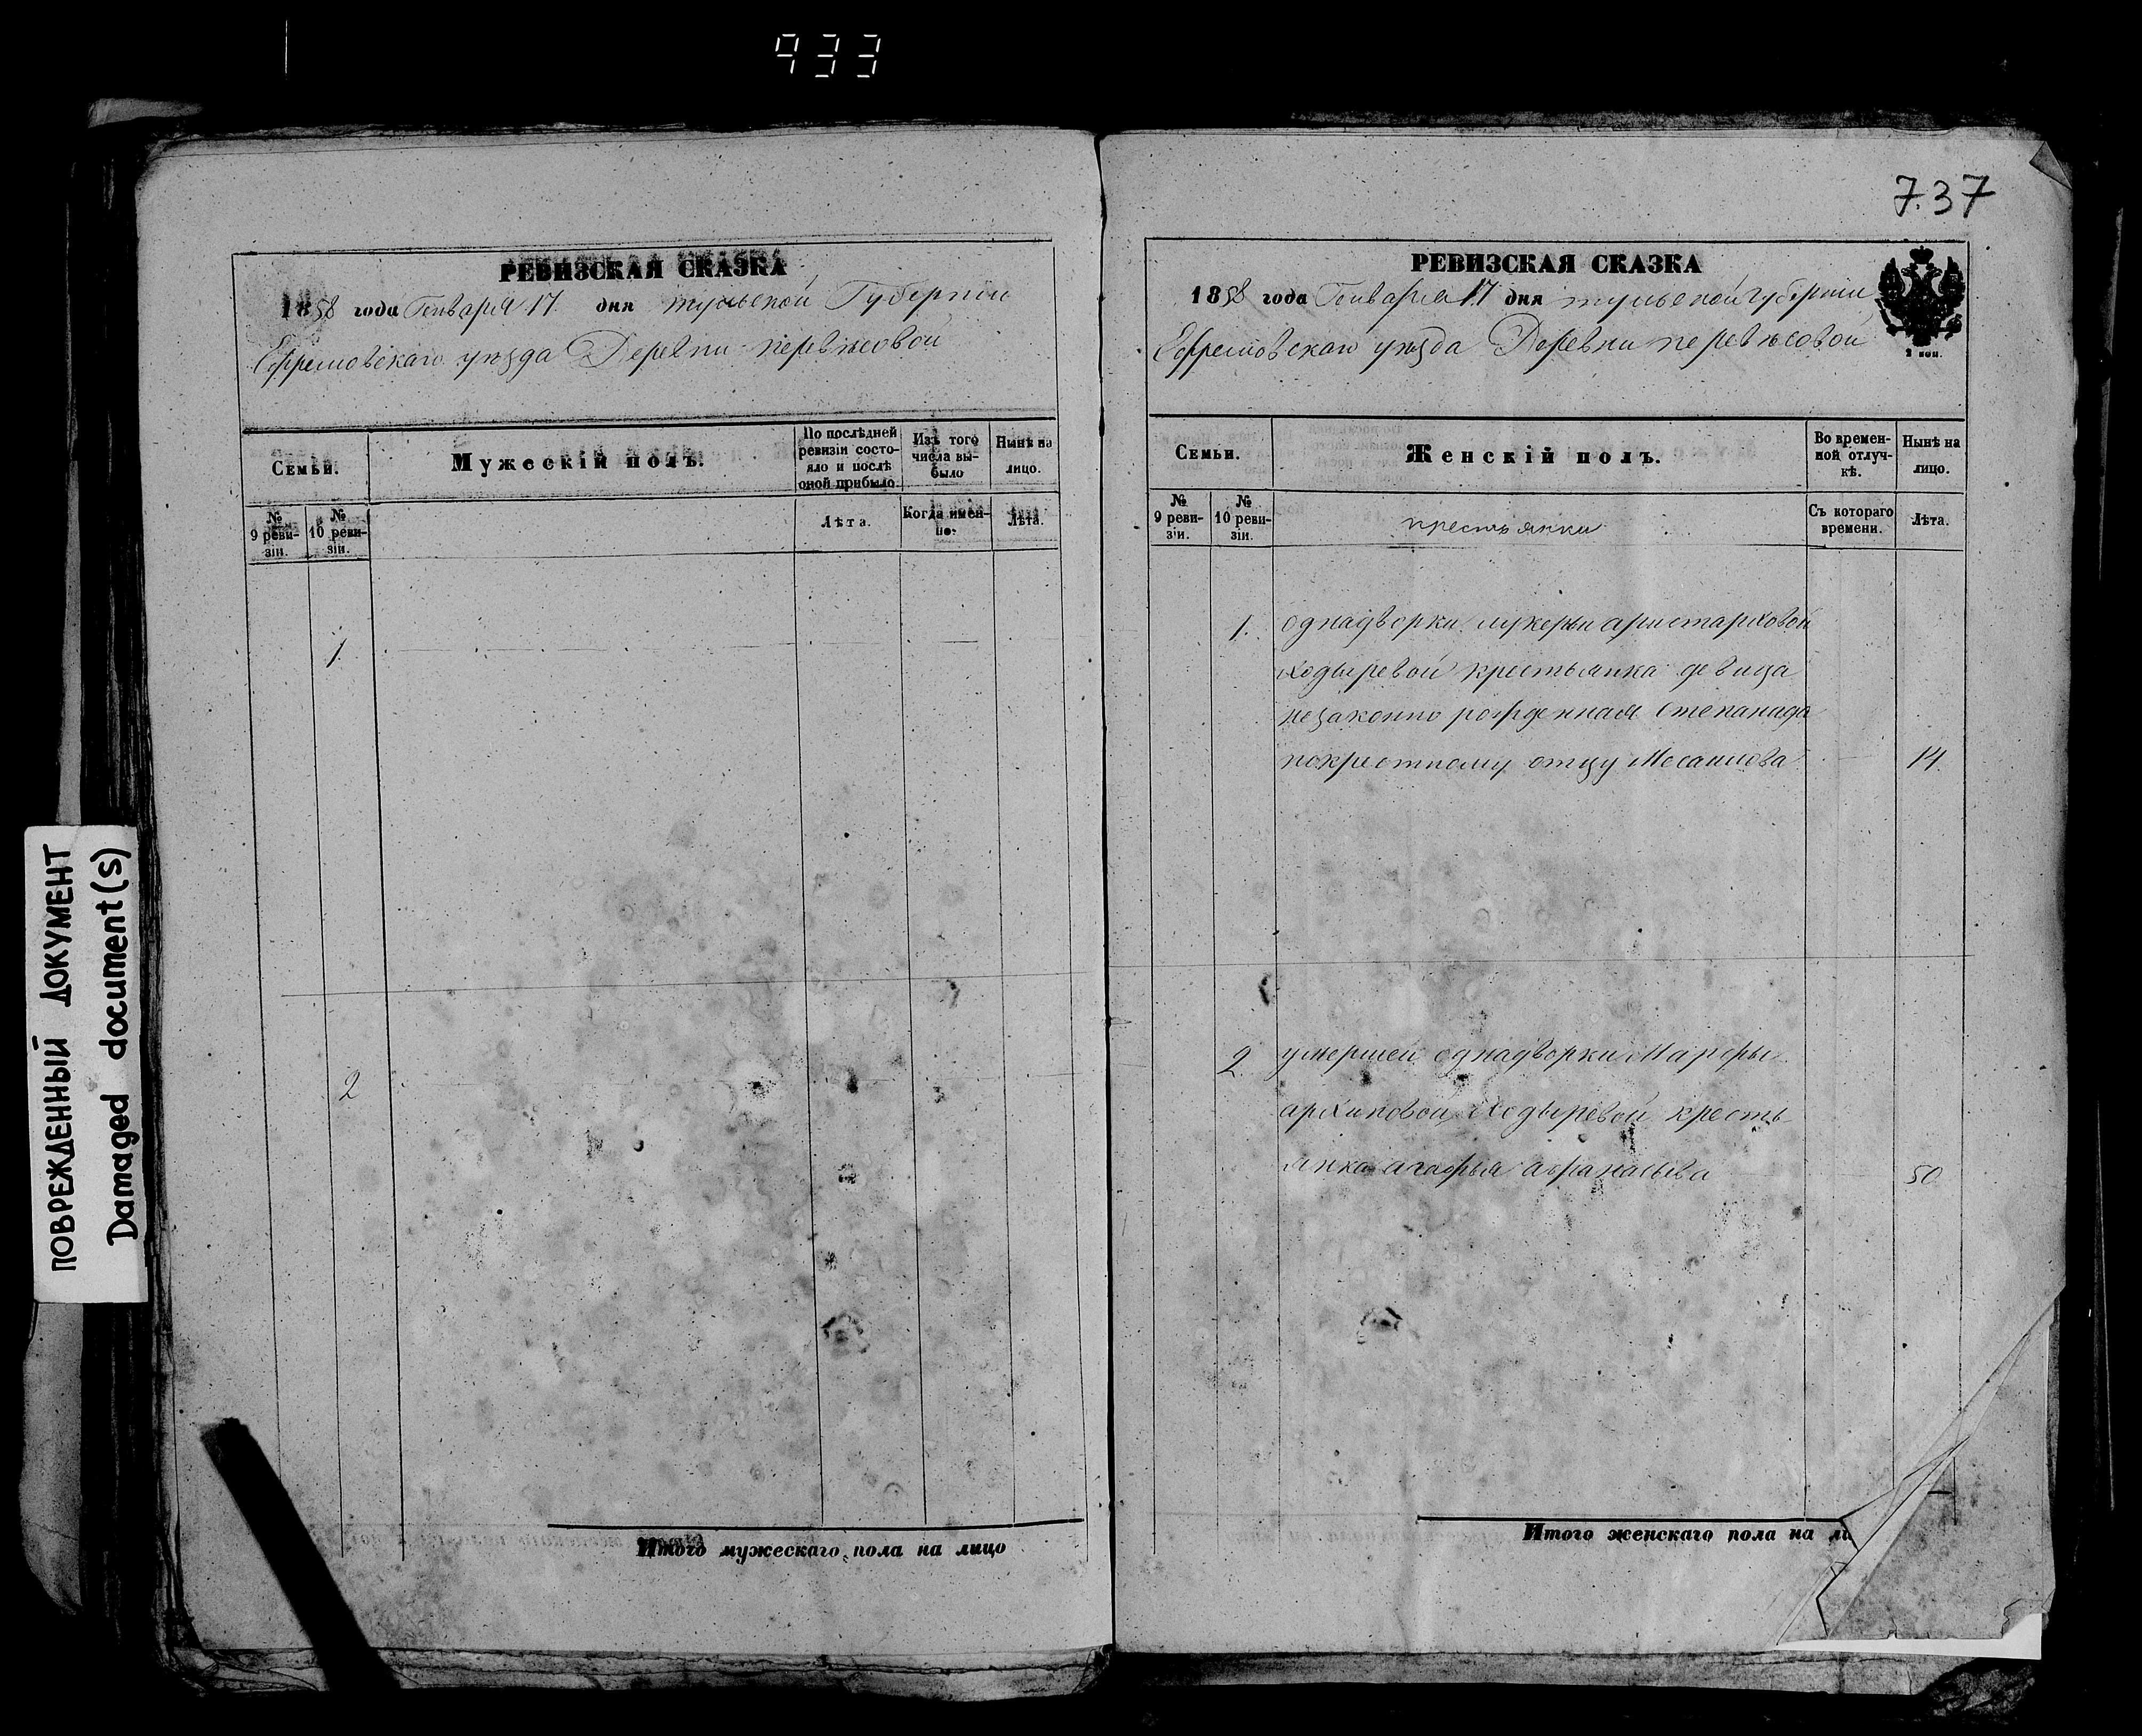 933
737
ПОВРЕЖДЕННЫЙ ДОКУМЕНТ
Damaged document(s)
РЕВИЗСКАЯ СКАЗКА
1858 года Генваря 17 дня тульской Губернии
Ефремовскаго уѣзда Деревни перевѣсовой
Семьи.
Мужескій полъ.
По послѣдней ревизіи состояло и послѣ оной прибыло.
Изъ того числа выбыло
Нынѣ на лицо.
№ 9 ревизіи.
№ 10 ревизіи.
Лѣта.
Когда именно.
Лѣта.
1.
2
Итого мужескаго пола на лицо
РЕВИЗСКАЯ СКАЗКА
1858 года Генваря 17 дня тульской губерніи
Ефремовскаго уѣзда Деревни перевѣсовой
2 коп.
Семьи.
Женскій полъ.
Во временной отлучкѣ.
Нынѣ на лицо.
№ 9 ревизіи.
№ 10 ревизіи.
крестьянки
Съ котораго времени.
Лѣта.
1. однадворки лукерьи аристарховой
ходыревой крестьянка девица
незаконно рожденная Степанида
покрестному отцу 14.
2. умершей однадворки Марфы
архиповой Ходыревой кресть
янка агафья афанасьева 50
Итого женскаго пола на ли